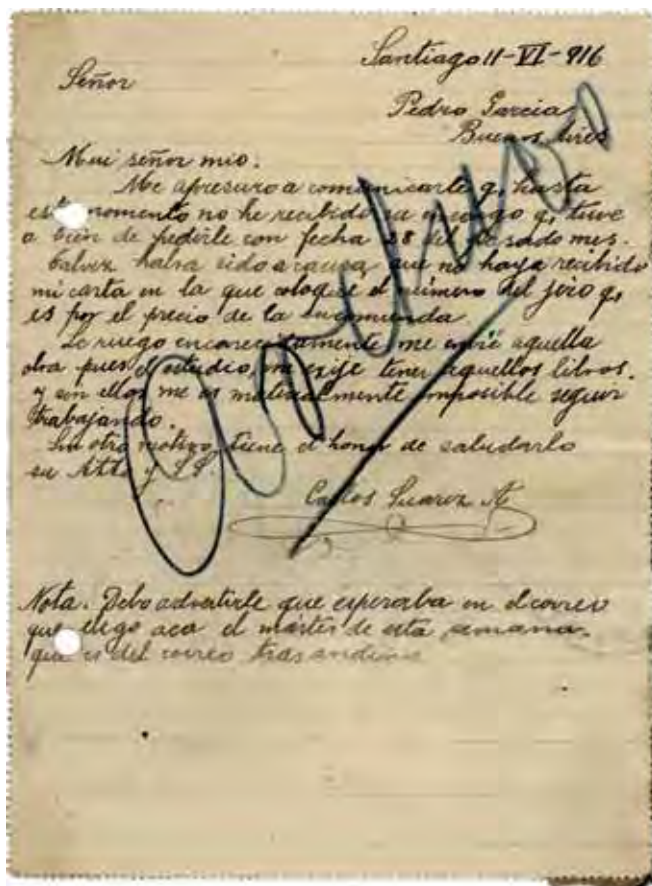 Santiago 11-VI-916
Señor
Pedro Garcia
Buenos Aires
Mui señor mio.
Me apresuro a comunicarle q, hasta
este momento no he recibido su encargo q, tuve
a bien de pedirle con fecha 28 del pasado mes.
Talvez habra sido a causa, que no haya recibido
mi carta en la que coloqué el número del jiro q,
es por el precio de la encomienda.
Le ruego encarecidamente me envie aquella
obra pues el estudio, me exije tener aquellos libros.
y sin ellos me es materialmente imposible seguir
trabajando.
Sin otro motivo, tiene el honor de saludarlo
su Atto y S.S.
Carlos Suarez A
Nota. Debo advertirle que esperaba en el correo
que llego aca el mártes de esta semana.
que es del correo trasandino